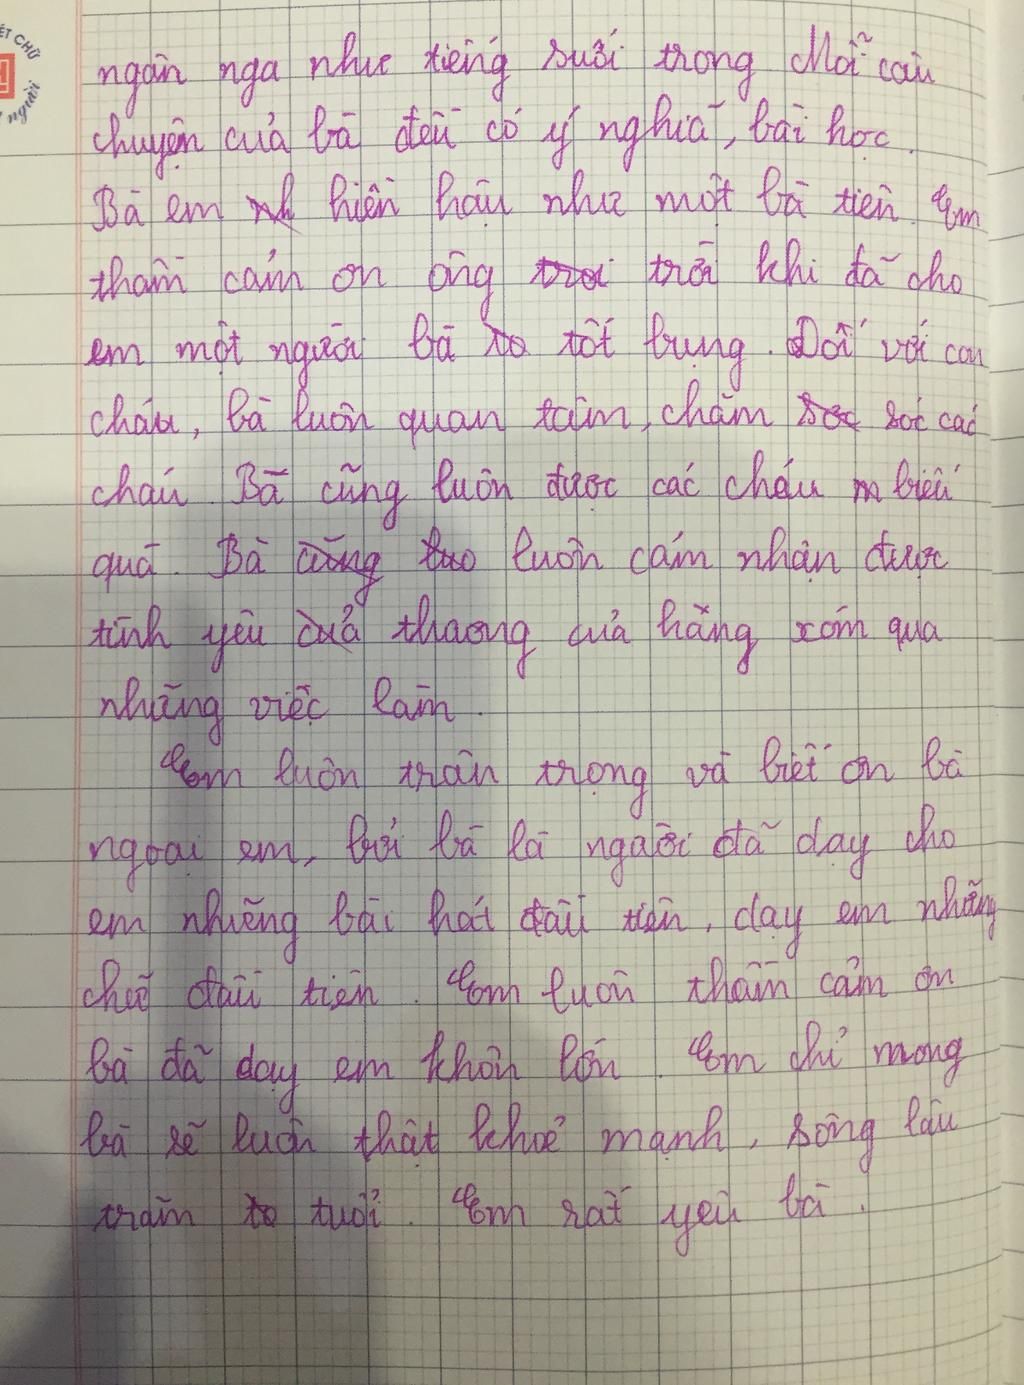 ẾT CHỮ
người
ngân nga như tiếng suối trong Mỗi câu
chuyện của bà đều có ý nghĩa, bài học.
Bà em nh hiền hậu như một bà tiên. Em
thầm cảm ơn ông trơi trời khi đã cho
em một người bà to tốt bụng. Đối với con
cháu, bà luôn quan tâm, chăm soc sóc các
cháu. Bà cũng luôn được các cháu m biếu
quà. Bà cũng luo luôn cảm nhận được
tình yêu của thương của hàng xóm qua
những việc làm.
Em luôn trân trọng và biết ơn bà
ngoại em, bởi bà là người đã dạy cho
em những bài hát đầu tiên, dạy em những
chữ đầu tiên. Em luôn thầm cảm ơn
bà đã dạy em khôn lớn. Em chỉ mong
bà sẽ luôn thật khoẻ mạnh, sống lâu
trăm to tuổi. Em rất yêu bà.